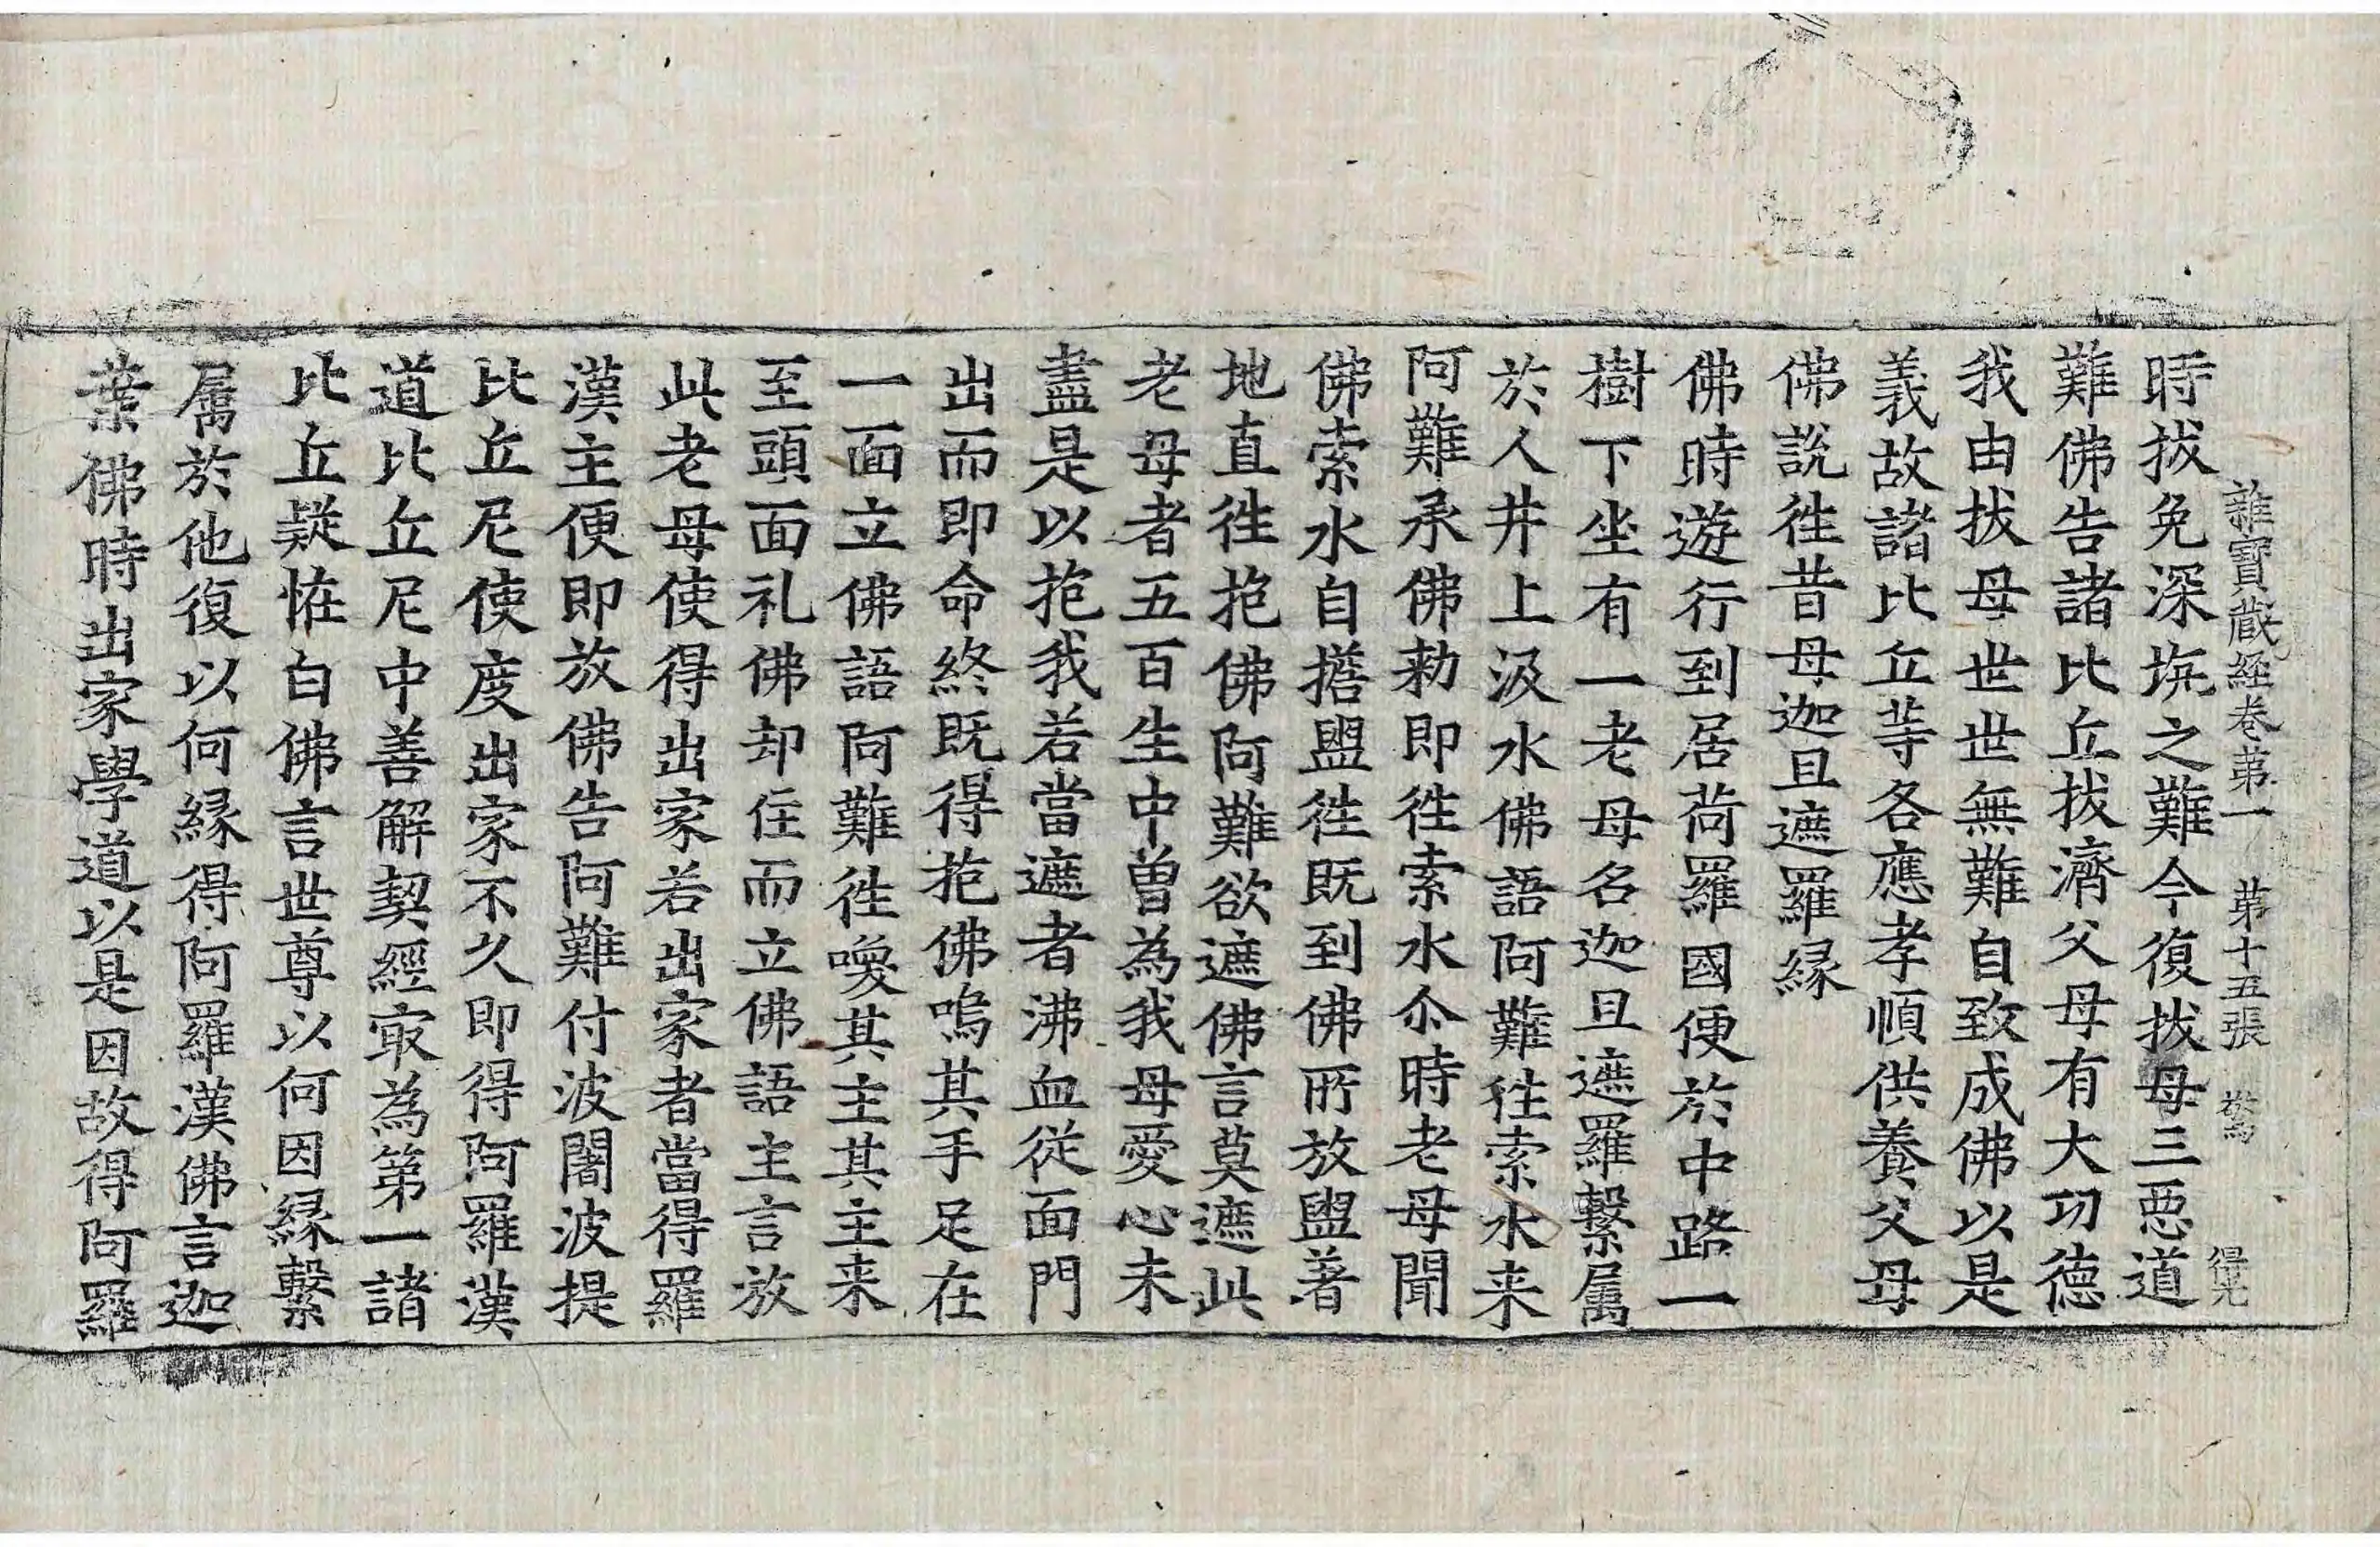 雜寶藏経卷第一 第十五張 驚 得光
時拔免深坑之難今復拔母三惡道
難佛告諸比丘拔濟父母有大功德
我由拔母世世無難自致成佛以是
義故諸比丘等各應孝順供養父母
佛說徃昔母迦旦遮羅縁
佛時遊行到居荷羅國便於中路一
樹下坐有一老母名迦旦遮羅繫属
於人井上汲水佛語阿難徃索水来
阿難承佛勑即徃索水尒時老母聞
佛索水自擔盥徃既到佛所放盥著
地直徃抱佛阿難欲遮佛言莫遮此
老母者五百生中曽為我母愛心未
盡是以抱我若當遮者沸血從面門
出而即命終既得抱佛嗚其手足在
一面立佛語阿難徃喚其主其主来
至頭面礼佛却住而立佛語主言放
此老母使得出家若出家者當得羅
漢主便即放佛告阿難付波闍波提
比丘尼使度出家不久即得阿羅漢
道比丘尼中善解契經㝡為第一諸
比丘疑恠白佛言世尊以何因縁繫
属於他復以何縁得阿羅漢佛言迦
葉佛時出家學道以是因故得阿羅